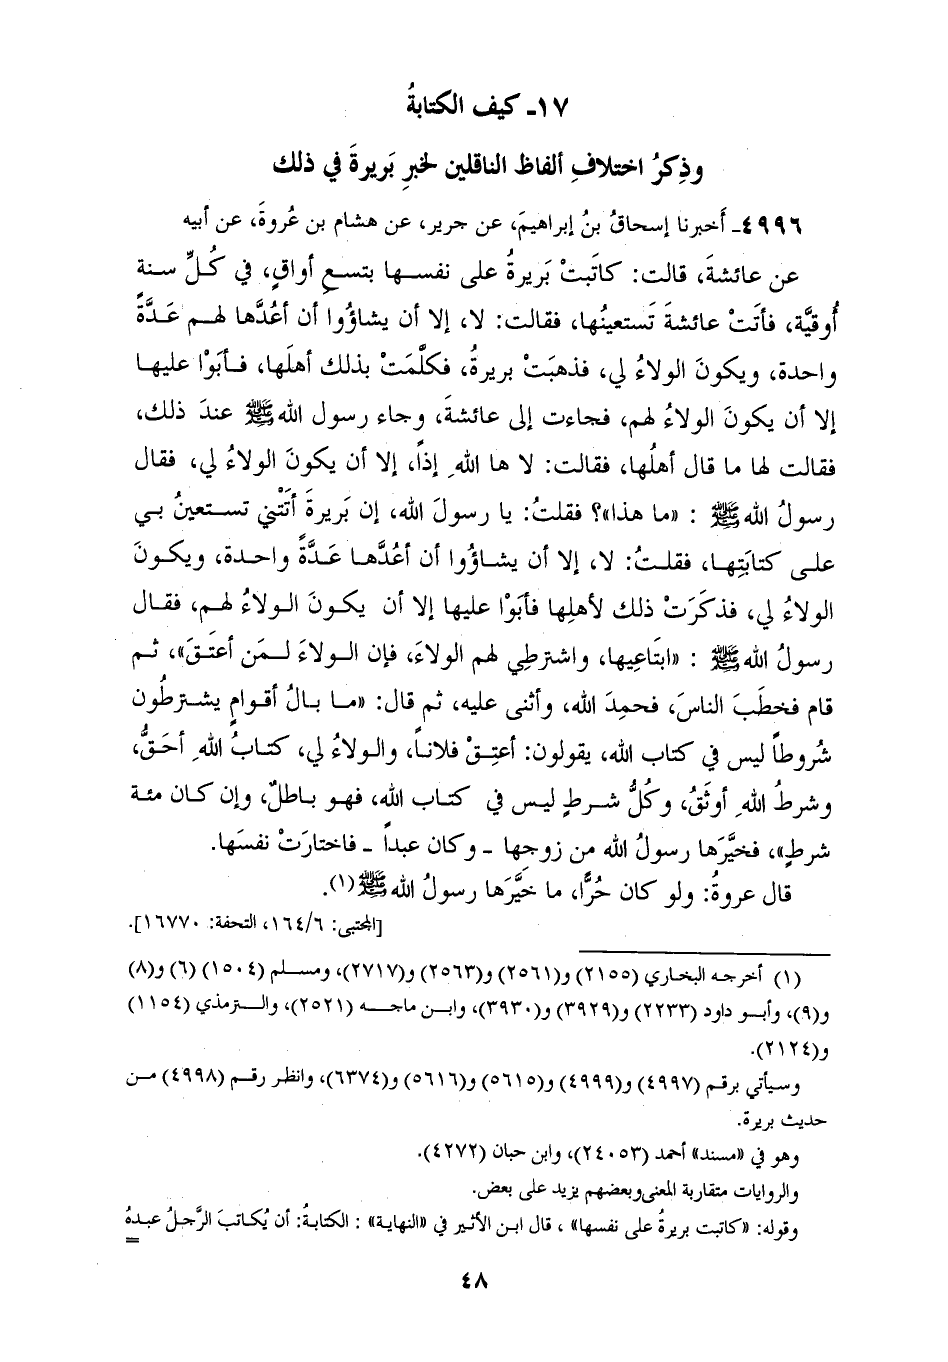 ١٧ـ كيف الكتابةُ
وذِكرُ اختلافِ ألفاظ الناقلين لخبرِ بَريرةَ في ذلك
٤٩٩٦ـ أَخبرنا إسحاقُ بنُ إبراهيمَ، عن جرير، عن هشام بن عُروةَ، عن أبيه
عن عائشةَ، قالت: كاتَبتْ بَريرةُ على نفسها بتسعِ أواقٍ، في كُلِّ سنة
أُوقيَّة، فأتَتْ عائشةَ تَستعينُها، فقالت: لا، إلا أن يشاؤُوا أن أعُدَّها لهم عَدَّةً
واحدة، ويكونَ الولاءُ لي، فذهبَتْ بريرةُ، فكلَّمَتْ بذلك أهلَها، فأبَوْا عليها
إلا أن يكونَ الولاءُ لهم، فجاءت إلى عائشةَ، وجاء رسول الله ﷺ عندَ ذلك،
فقالت لها ما قال أهلُها، فقالت: لا ها اللهِ إذاً، إلا أن يكونَ الولاءُ لي، فقال
رسولُ الله ﷺ : «ما هذا»؟ فقلتُ: يا رسولَ الله، إن بَريرةَ أتَتْني تستعينُ بي
على كتابَتِها، فقلتُ: لا، إلا أن يشاؤُوا أن أعُدَّها عَدَّةً واحدة، ويكونَ
الولاءُ لي، فذكَرَتْ ذلك لأهلِها فأبَوْا عليها إلا أن يكونَ الولاءُ لهم، فقال
رسولُ الله ﷺ : «ابتَاعِيها، واشترطِي لهم الولاءَ، فإن الولاءَ لمَن أعتَقَ»، ثم
قام فخطَبَ الناسَ، فحمِدَ الله، وأثنى عليه، ثم قال: «ما بالُ أقوامٍ يشترطُون
شُروطاً ليس في كتاب الله، يقولون: أعتِقْ فلاناً، والولاءُ لي، كتابُ اللهِ أحَقُّ،
وشرطُ اللهِ أوثَقُ، وكُلُّ شرطٍ ليس في كتاب الله، فهو باطلٌ، وإن كان مئة
شرطٍ»، فخيَّرَها رسولُ الله من زوجِها ـ وكان عبداً ـ فاختارَتْ نفسَها.
قال عروةُ: ولو كان حُرًّا، ما خَيَّرَها رسولُ الله ﷺ(١).
[المجتبى: ١٦٤/٦، التحفة: ١٦٧٧٠].
(١) أخرجه البخاري (٢١٥٥) و(٢٥٦١) و(٢٥٦٣) و(٢٧١٧)، ومسلم (١٥٠٤) (٦) و(٨)
و(٩)، وأبو داود (٢٢٣٣) و(٣٩٢٩) و(٣٩٣٠)، وابن ماجه (٢٥٢١)، والترمذي (١١٥٤)
و(٢١٢٤).
وسيأتي برقم (٤٩٩٧) و(٤٩٩٩) و(٥٦١٥) و(٥٦١٦) و(٦٣٧٤)، وانظر رقم (٤٩٩٨) من
حديث بريرة.
وهو في «مسند» أحمد (٢٤٠٥٣)، وابن حبان (٤٢٧٢).
والروايات متقاربة المعنى وبعضهم يزيد على بعض.
وقوله: «كاتبت بريرةُ على نفسها» ، قال ابن الأثير في «النهاية» : الكتابةُ: أن يُكاتبَ الرَّجلُ عبدهُ
=
٤٨